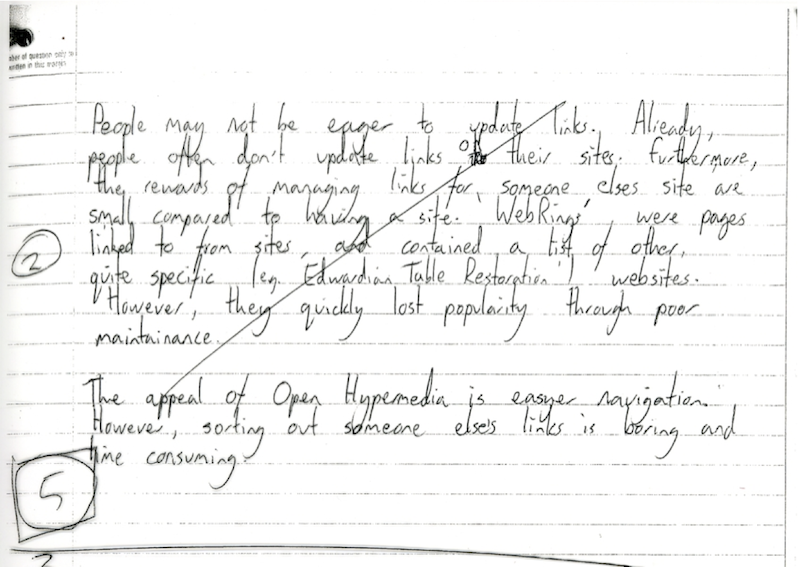 People may not be eager to update links. Already,
people often don't update links on their sites. Furthermore,
the rewards of managing links for someone elses site are
small compared to having a site. 'WebRings' were pages
linked to from sites, and contained a list of other,
quite specific (eg. 'Edwardian Table Restoration') websites.
However, they quickly lost popularity through poor
maintainance.
2
The appeal of Open Hypermedia is easyer navigation.
However, sorting out someone else's links is boring and
time consuming.
5